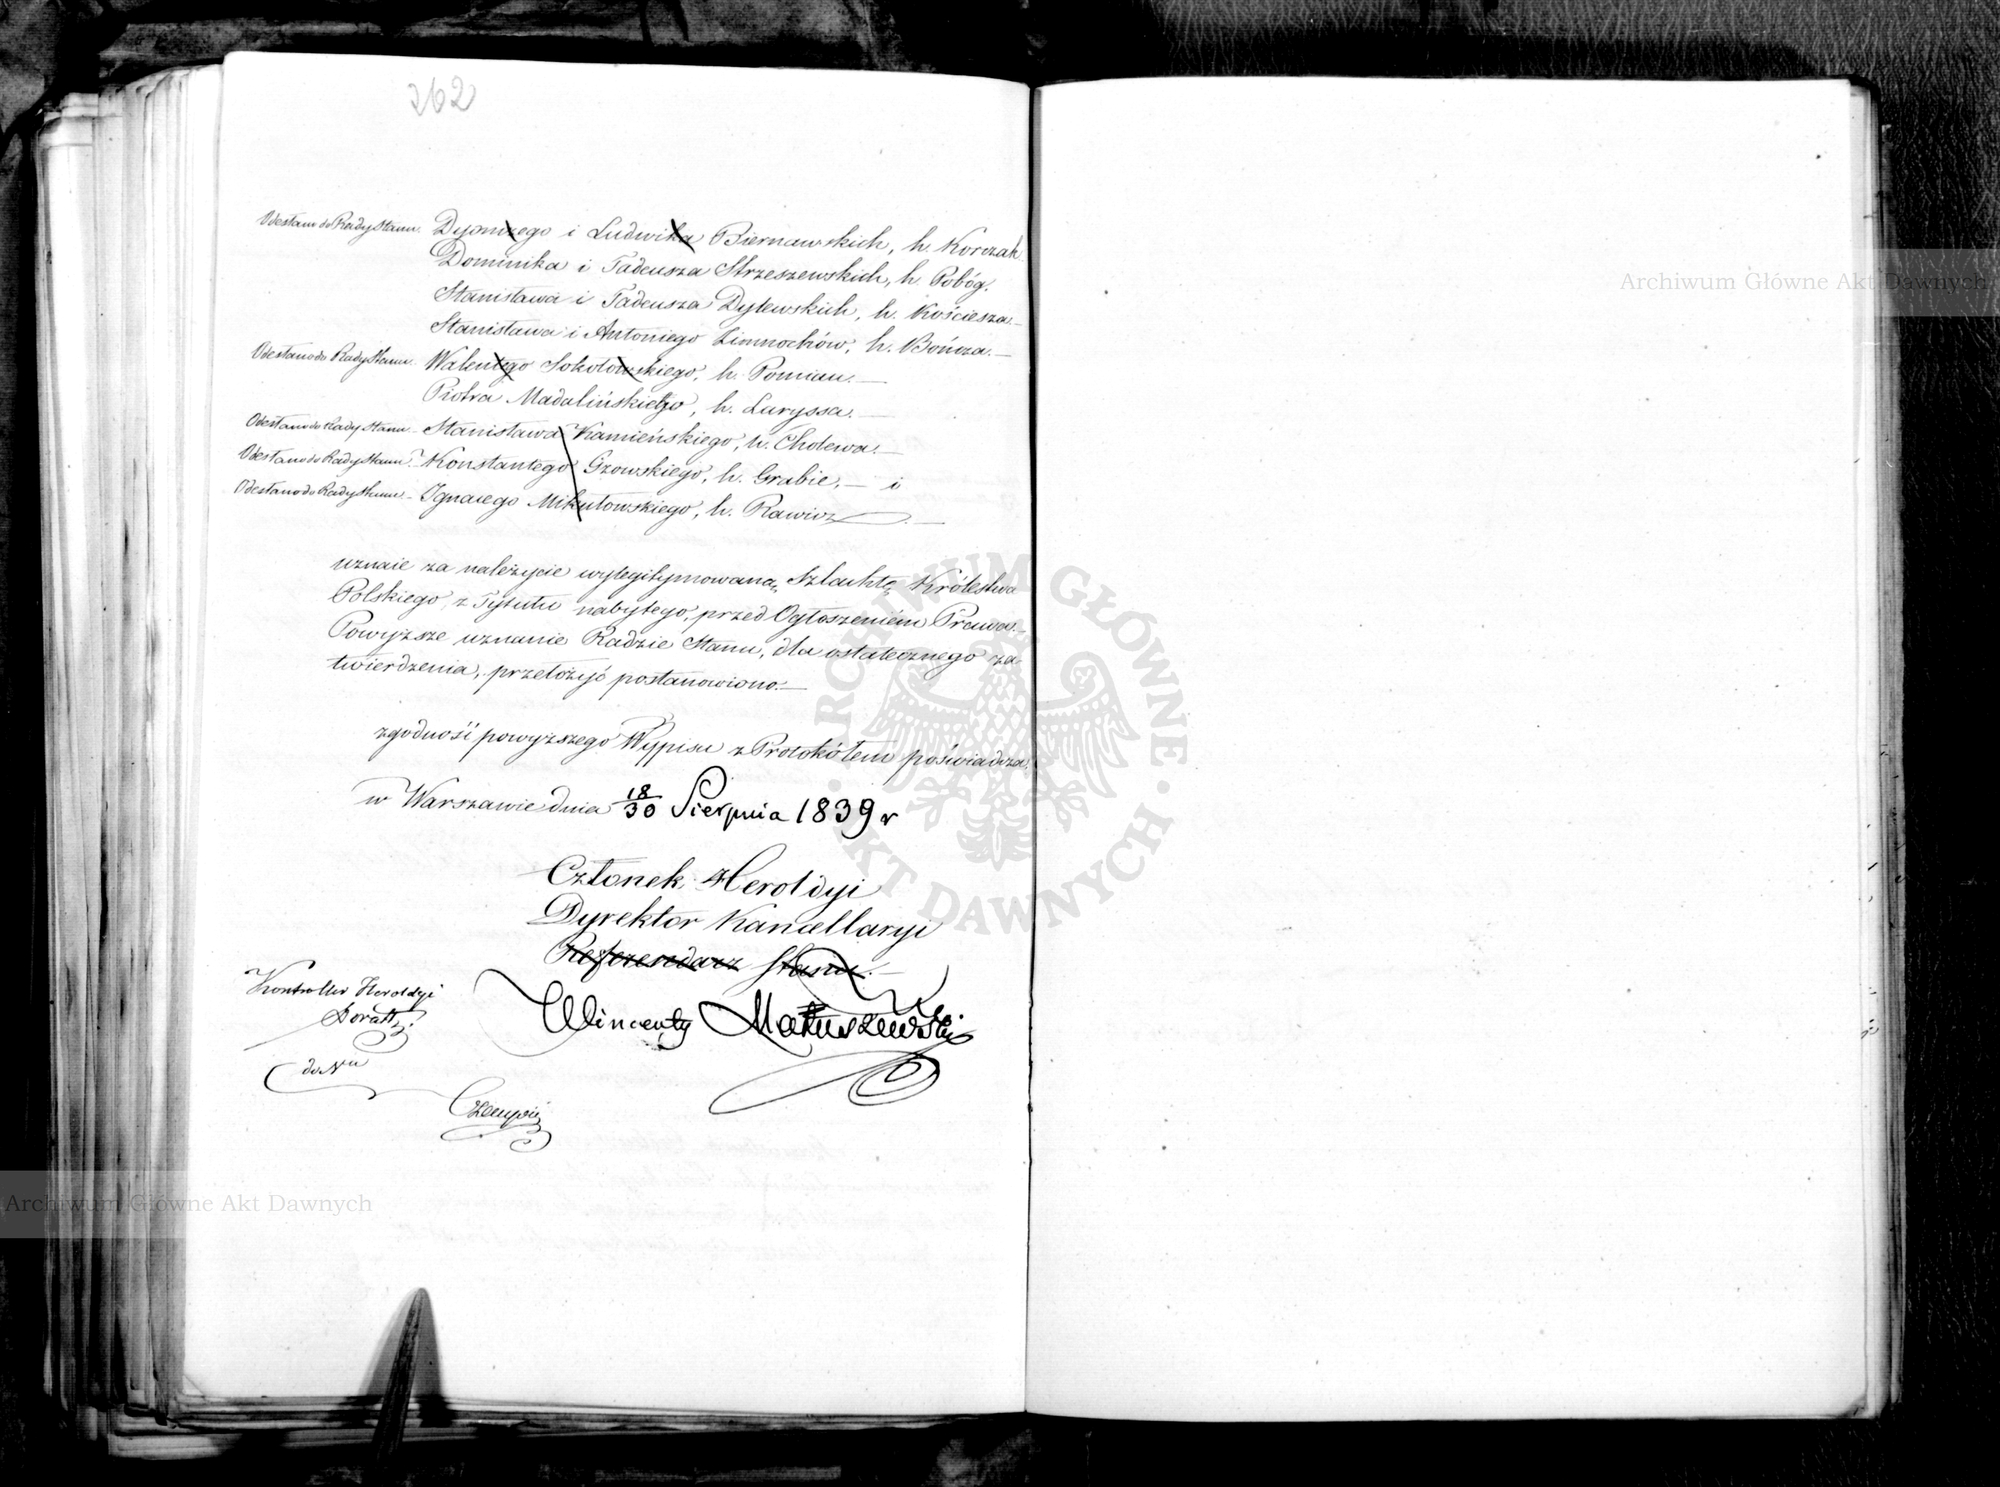 262
Odesłano do Rady Stanu. Dyonizego i Ludwika Biernawskich, h. Korczak.
Dominika i Tadeusza Strzeszewskich, h. Pobóg.
Stanisława i Tadeusza Dylewskich, h. Kościesza.—
Stanisława i Antoniego Zimnochów, h. Bończa.—
Odesłano do Rady Stanu. Walentego Sokołowskiego, h. Pomian.—
Piotra Madalińskiego, h. Laryssa.—
Odesłano do Rady Stanu — Stanisława Kamieńskiego, h. Cholewa.—
Odesłano do Rady Stanu. — Konstantego Gzowskiego, h. Grabie, — i
Odesłano do Rady Stanu — Ignacego Mikułowskiego, h. Rawicz.—
uznaie za należycie wylegitymowaną Szlachtę Królestwa
Polskiego, z Tytułu nabytego, przed Ogłoszeniem Prawa.—
Powyższe uznanie Radzie Stanu, dla ostatecznego za-
twierdzenia, przełożyć postanowiono.—
zgodność powyższego Wypisu z Protokółem poświadcza.
w Warszawie dnia 18/30 Sierpnia 1839 r
Członek Heroldyi
Dyrektor Kancellaryi
Referendarz Stanu.—
Wincenty Matuszewski
Kontroller Heroldyi
do Nru
Archiwum Główne Akt Dawnych
Archiwum Główne Akt Dawnych
ARCHIWUM GŁÓWNE · AKT DAWNYCH ·